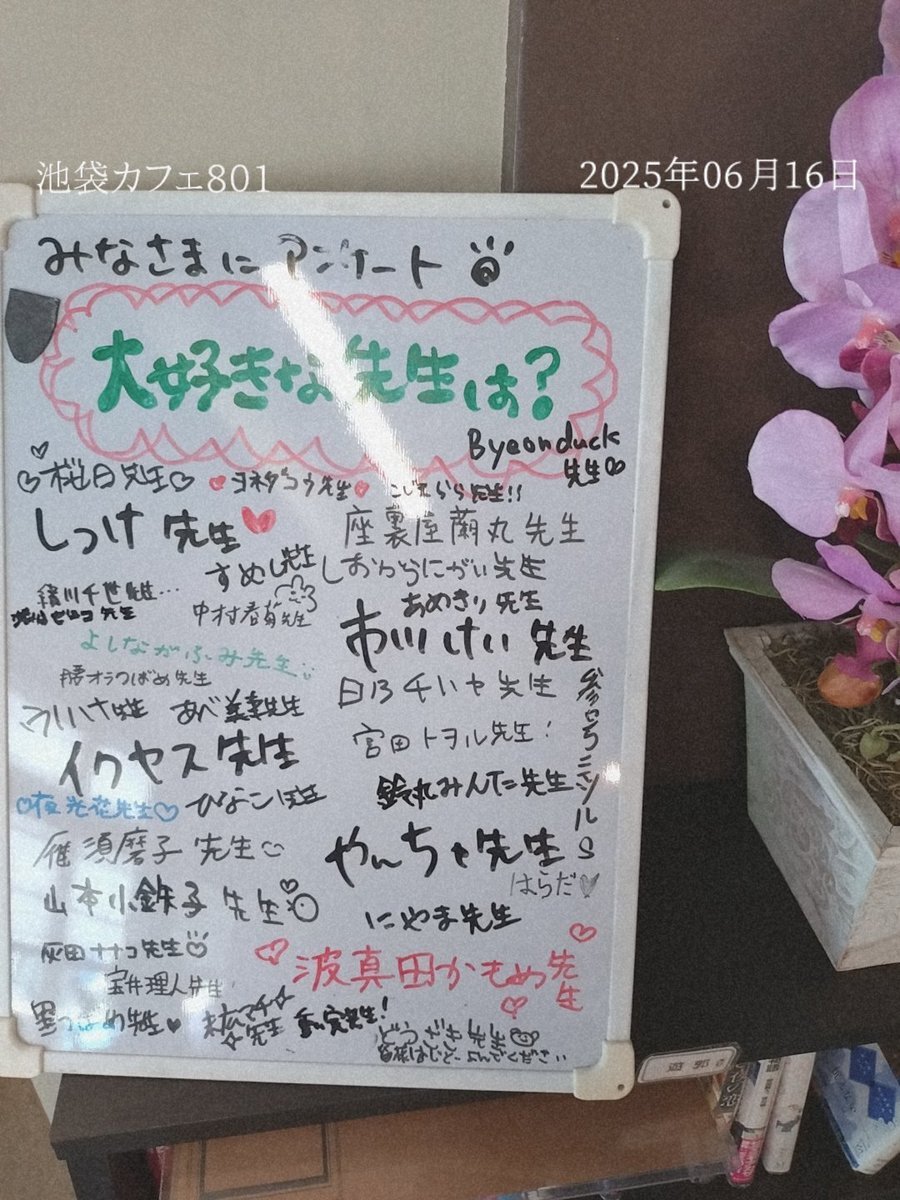 池袋カフェ801
2025年06月16日
みなさまにアンケート
大好きな先生は?
Byeonduck
先生
桜日先生
ヨネダコウ先生
こじまらら先生!!
しっけ先生
座裏屋蘭丸先生
すめし先生
しおからにがい先生
緒川千世先生…
先生
中村春菊先生
あめきり先生
市川けい先生
よしながふみ先生
腰オラつばめ先生
日乃チハヤ先生
先生
あべ美幸先生
イクヤス先生
宮田トヲル先生!
鈴丸みんた先生
夜光花先生
ひなこ先生
雁須磨子先生
やんちゃ先生
はらだ
山本小鉄子先生
にやま先生
灰田ナナコ先生
波真田かもめ先生
宝井理人先生
末広マチ先生
先生!
どうざき先生